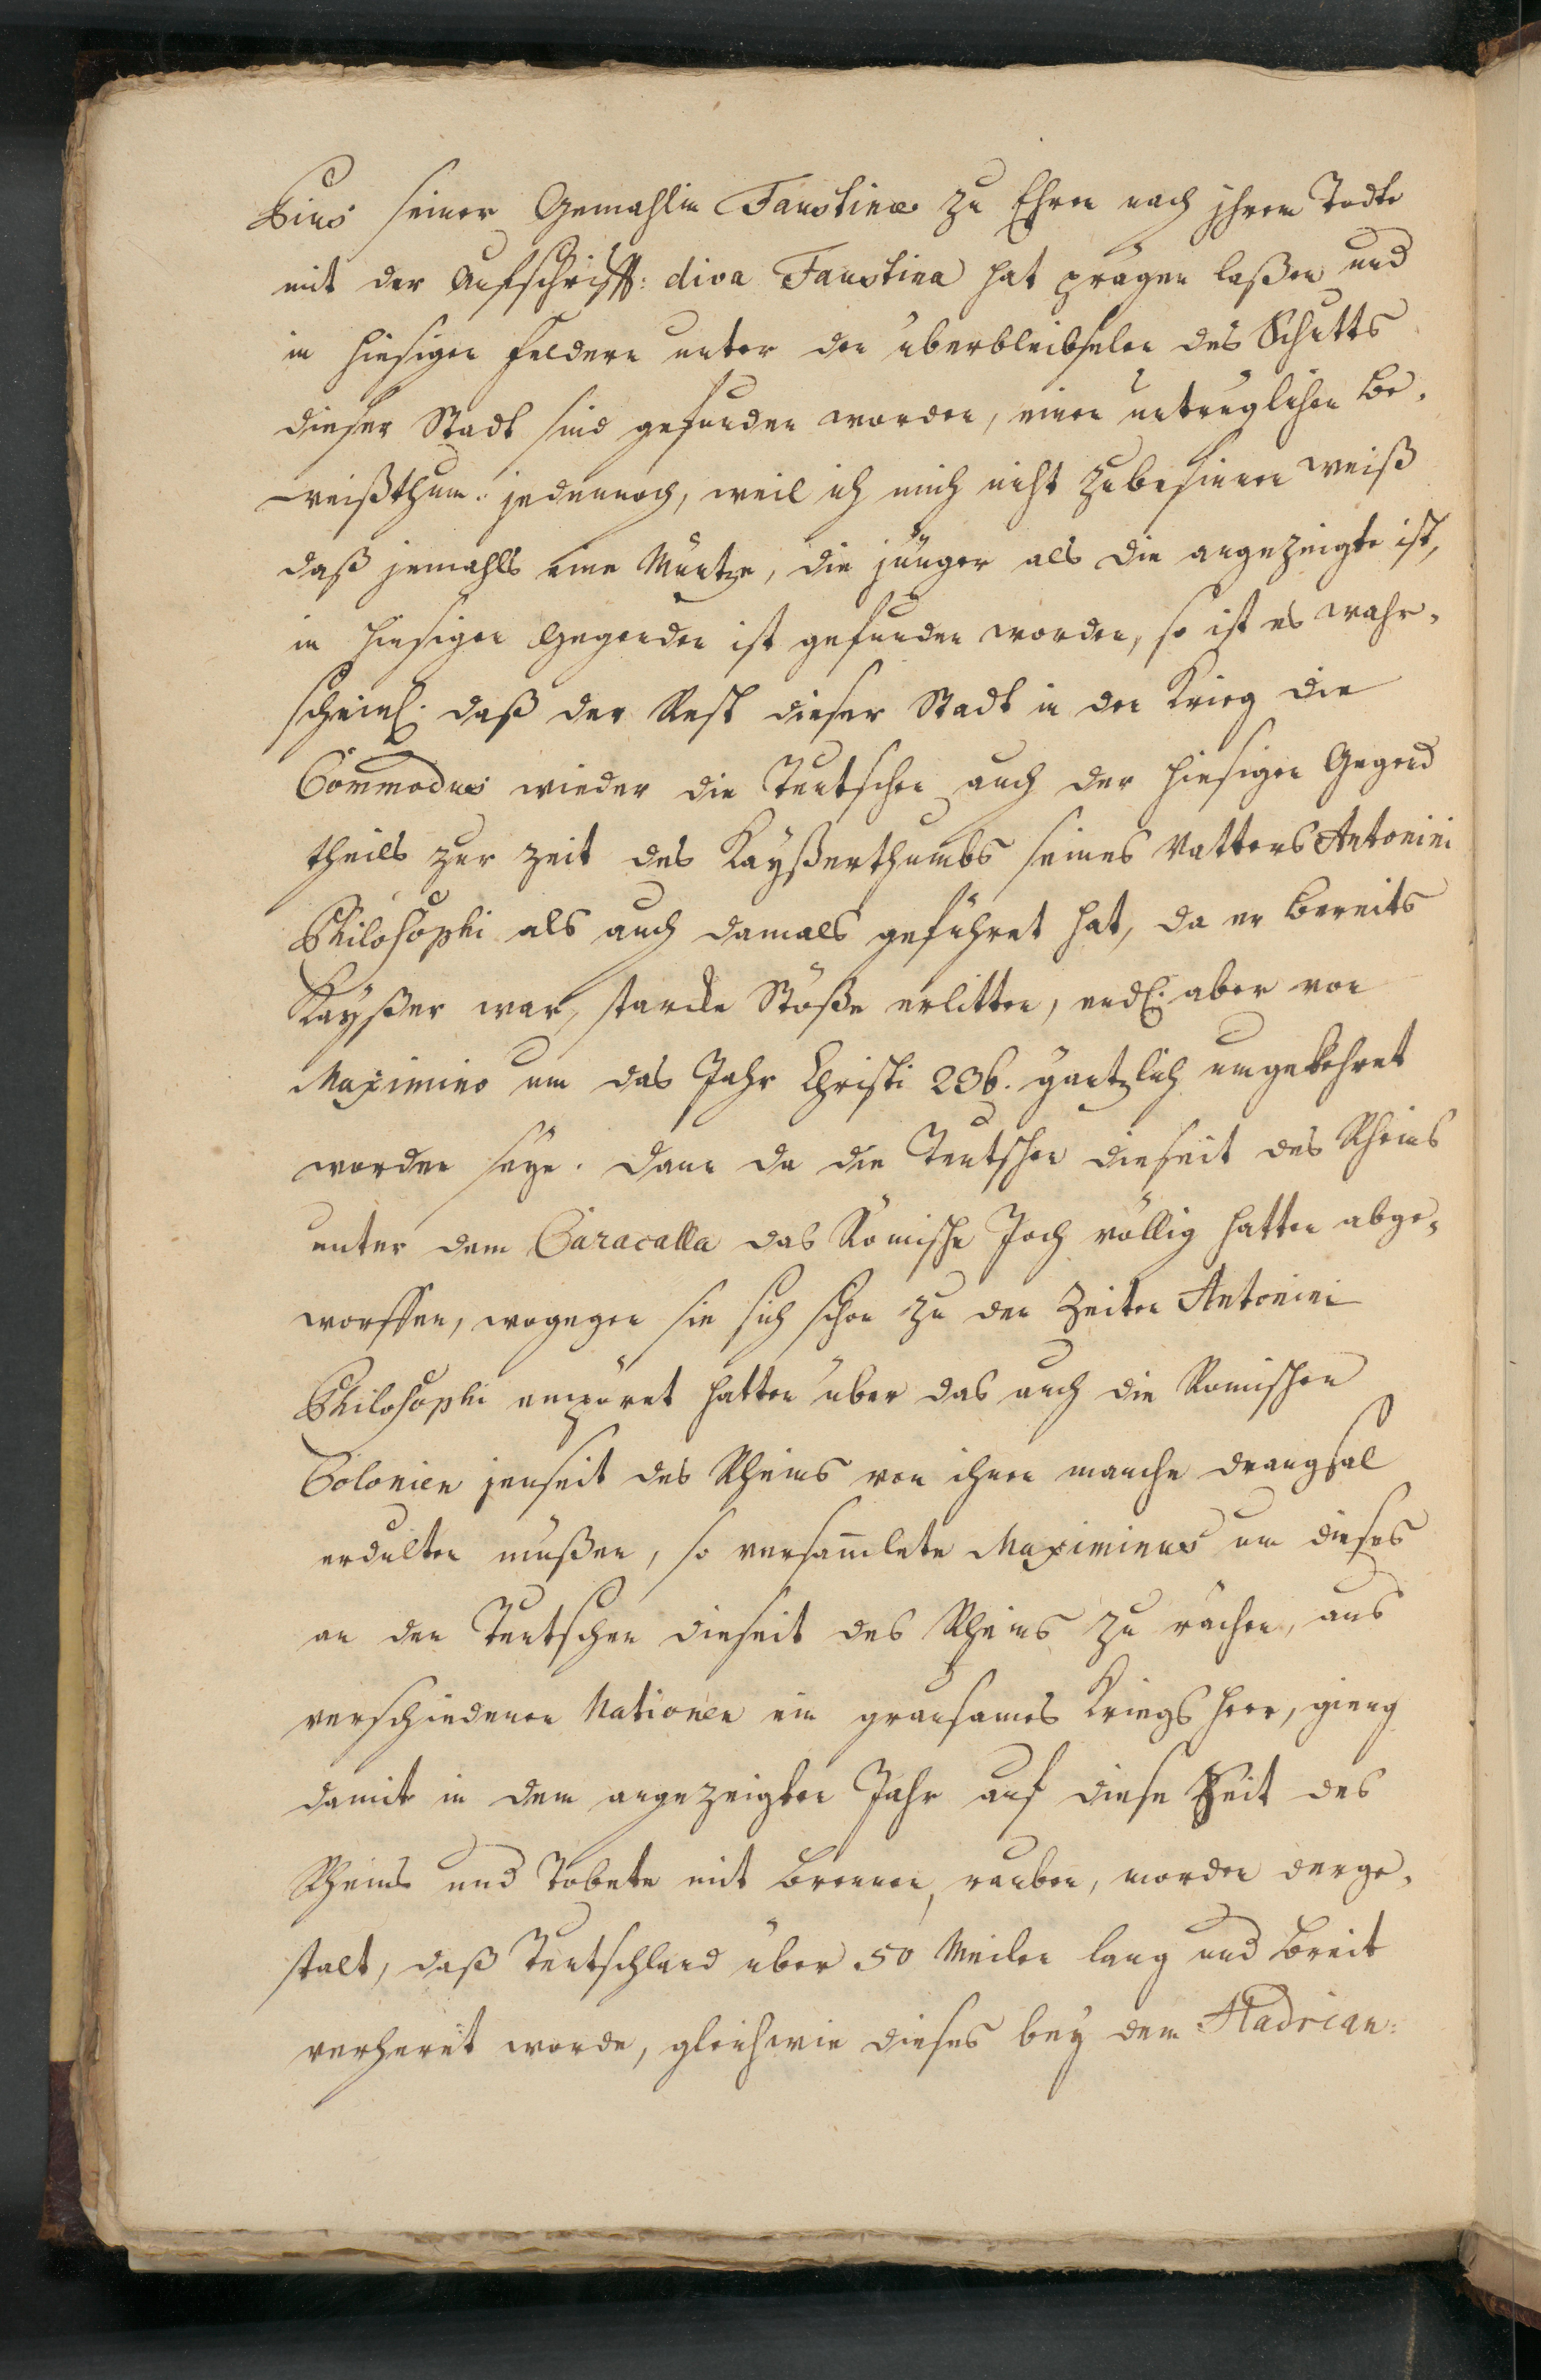 Pius seiner Gemahlin Faustinæ zu Ehren nach jhrem Todte
mit der Aufschrifft: diva Faustina hat prägen laßen und
in hiesigen Feldern unter den überbleibselen des Schutts
dieser Stadt sind gefunden worden, einen untrüglichen Be-
weißthum. jedennoch, weil ich mich nicht zubesinnen weiß
daß jemahls eine Müntze, die jünger als die angezeigte ist,
in hiesigen Gegenden ist gefunden worden, so ist es wahr-
scheinl. daß der Rest dieser Stadt in den Krieg die
Commodus wieder die Teutschen auch der hiesigen Gegend
theils zur zeit des Kayßerthumbs seines Vatters Antonini
Philosophi als auch damals geführet hat, da er bereits
Kayßer war, starcke Stöße erlitten, endl. aber von
Maximino um das Jahr Christi 236. gäntzlich umgekehret
worden seye. dann da die Teutschen dieseit des Rheins
unter dem Caracalla das Römische Joch völlig hatten abge-
worffen, wogegen sie sich schon zu den Zeiten Antonini
Philosophi empöret hatten über das auch die Römischen
Colonien jenseit des Rheins von ihnen manche drangsal
erdulten müßen, so versam̄lete Maximinus um dieses
an den Teutschen dieseit des Rheins zu rächen, aus
verschiedenen Nationen ein grausames Kriegs heer, gieng
damit in dem angezeigten Jahr auf diese Seit des
Rheins und Tobete mit brennen, rauben, morden derge-
stalt, daß Teutschland über 50 Meilen lang und breit
verheret worde, gleichwie dieses bey dem Hadrian: